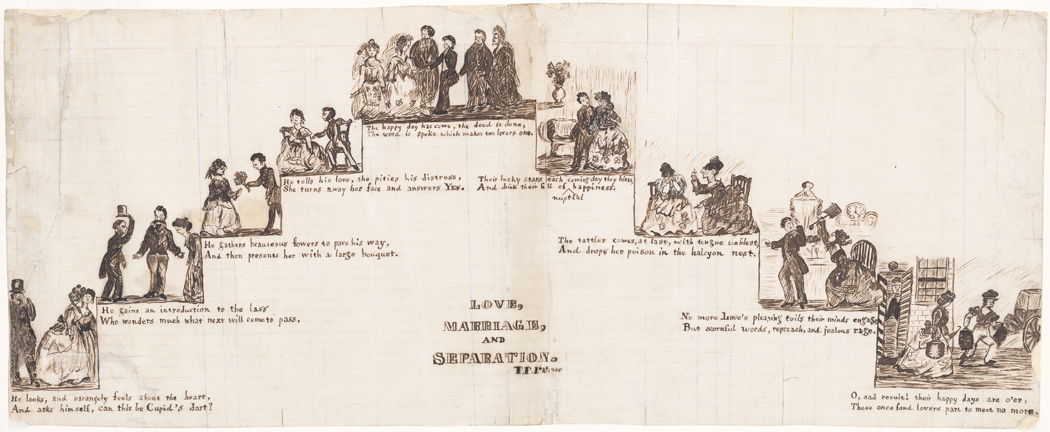 He looks, and strangely feels about the heart,
And asks himself, can this be Cupid's dart?
He gains an introduction to the lass
Who wonders much what next will come to pass.
He gathers beauteous flowers to pave his way,
And then presents her with a large bouquet.
He tells his love, she pities his distress,
She turns away her face and answers YES.
The happy day has come, the deed is done,
The word is spoke which makes two lovers one.
Their lucky stars each coming day they bless
And drink their fill of happiness.
nuptial
The tattler comes, at last, with tongue unblest,
And drops her poison in the halcyon nest.
No more Love's pleasing toils their minds engage
But scornful words, reproach, and jealous rage.
O, sad result! their happy days are o'er,
These once fond lovers part to meet no more.
LOVE,
MARRIAGE,
AND
SEPARATION.
T.P.